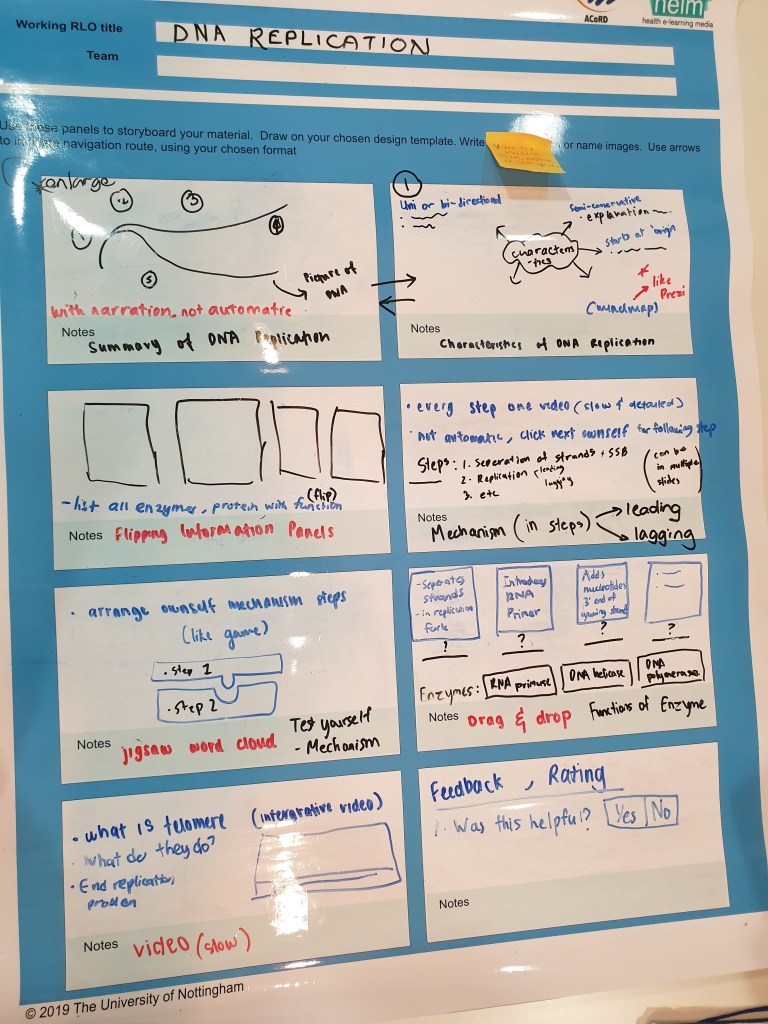 helm
ACoRD
health e-learning media
Working RLO title
DNA REPLICATION
Team
Use these panels to storyboard your material. Draw on your chosen design template. Write or name images. Use arrows
to navigation route, using your chosen format
enlarge
1
2
3
4
5
Picture of
DNA
with narration, not automatic
Notes
Summary of DNA Replication
1
Uni or bi-directional
semi-conservative
explanation
starts at origin
characteris
-tics
* like
Prezi
(mindmap)
Notes
Characteristics of DNA Replication
(flip)
- list all enzymes, protein with function
Notes Flipping Information Panels
• every step one video (slow & detailed)
• not automatic, click next ownself for following step
Steps: 1. Seperation of strands + SSB
2. Replication leading
lagging
3. etc
(can be
in multiple
slides)
Notes
Mechanism (in steps) leading
lagging
• arrange ownself mechanism steps
(like game)
• Step 1
• Step 2
Test yourself
- Mechanism
Notes jigsaw word cloud
- Seperates
strands
- in replication
fork
Introduces
RNA
Primer
Adds
nucleotides
3' end of
growing strand
?
?
?
?
Enzymes: RNA primase DNA helicase DNA
polymerase
Notes Drag & drop Functions of Enzyme
• What is telomere (intergrative video)
• What do they do?
• End replication
problem
Notes video (slow)
Feedback, Rating
1. Was this helpful? Yes No
Notes
© 2019 The University of Nottingham